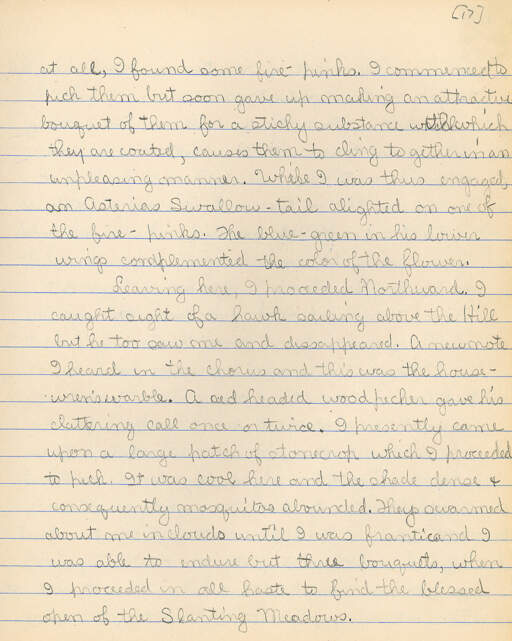 [17]
at all, I found some fire-pinks. I commenced to
pick them but soon gave up making an attractive
bouquet of them for a sticky substance with which
they are coated, causes them to cling together in an
unpleasing manner. While I was thus engaged,
an Asterias Swallow-tail alighted on one of
the fire-pinks. The blue-green in his lower
wings complemented the color of the flower.
Leaving here, I proceeded Northward. I
caught sight of a hawk sailing above the Hill
but he too saw me and dissappeared. A new note
I heard in the chorus and this was the house-
wren's warble. A red headed woodpecker gave his
clattering call once or twice. I presently came
upon a large patch of stonecrop which I proceeded
to pick. It was cool here and the shade dense &
consequently mosquitos abounded. They swarmed
about me in clouds until I was frantic and I
was able to endure but three bouquets, when
I proceeded in all haste to find the blessed
open of the Slanting Meadows.